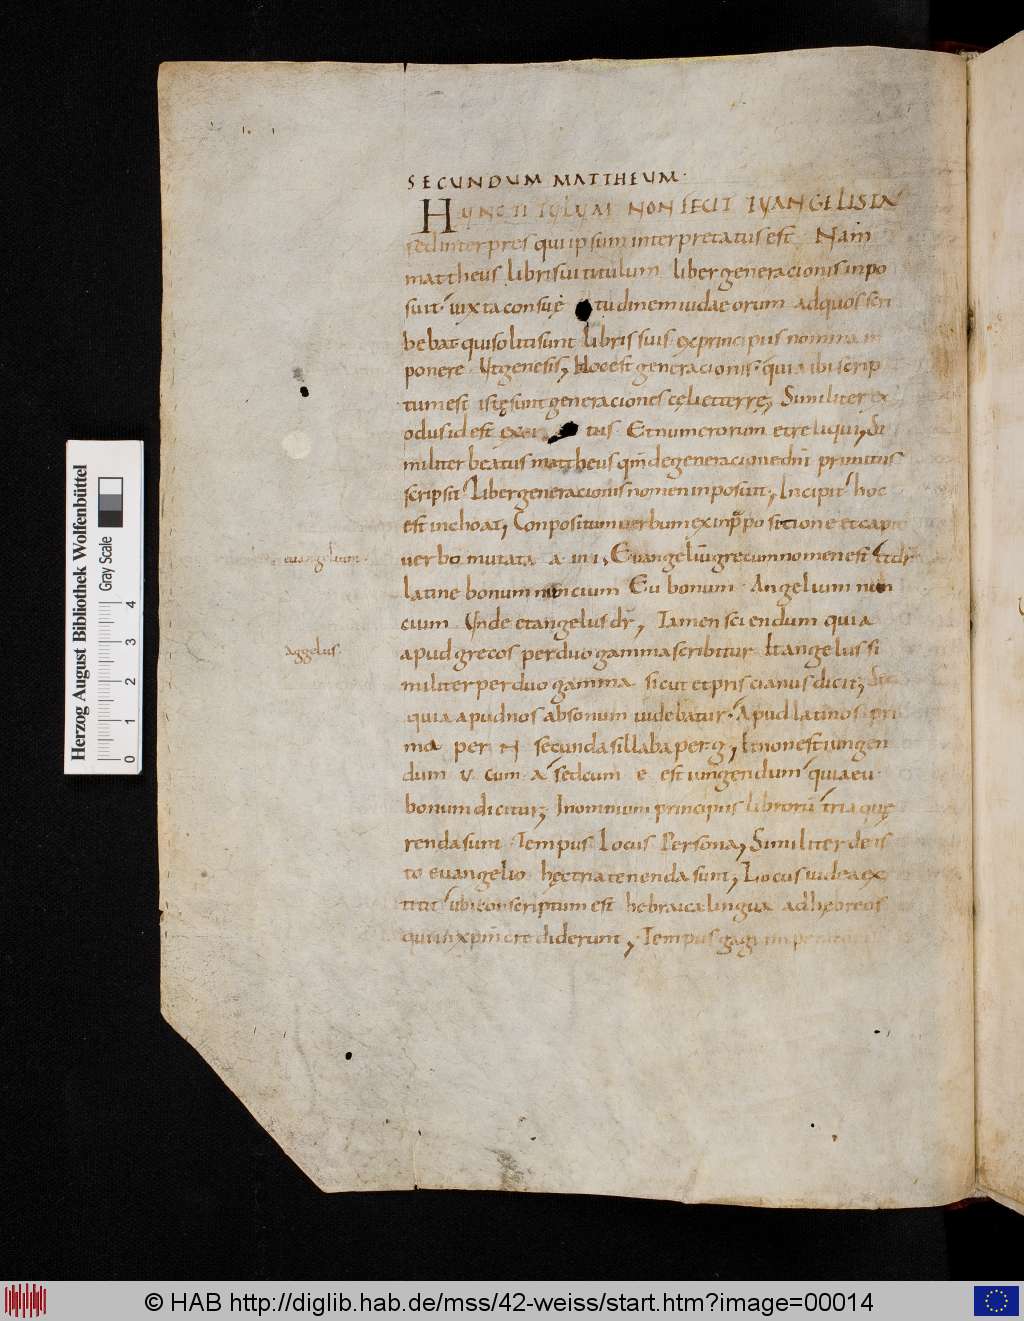 SECUNDUM MATTHEUM·
HUNC TITULUM NON FECIT EVANGELISTA
sed interpres qui ipsum interpretatus est Nam
mattheus libri sui titulum liber generacionis inpo
suit· iuxta consuę tudinem iudaeorum ad quos scri
bebat· qui soliti sunt libris suis ex principiis nomina in
ponere· Ut genesis, Hoc est generacionis· quia ibi scrip
tum est istę sunt generaciones cęli et terrę; Similiter ex
odus id est tus· Et numerorum et reliqui, Si
militer beatus mattheus qm̄ de generacione dn̄i primitus
scripsit· Liber generacionis nomen inposuit, Incipit· hoc
est inchoat, Conpositum verbum ex in prepositione et capio
verbo mutata a· in i, Evangeliū grecum nomen est· Et dr̄
latine bonum nuncium Eu bonum· Angelium nun
cium Unde et angelus dr̄, Tamen sciendum quia
apud grecos per duo gamma scribitur Et angelus si
militer per duo gamma sicut et priscianus dicit; Sed
quia apud nos absonum videbatur· Apud latinos pri
ma per N secunda sillaba per g, Et non est iungen
dum v cum a· sed cum e est iungendum· quia eu·
bonum dicitur; In omnium principiis librorū tria quę
renda sunt· Tempus Locus Persona, Similiter de is
to evangelio hęc tria tenenda sunt, Locus iudea ex
titit· ubi conscriptum est hebraica lingua ad hębreos
qui in xp̄m crediderunt, Tempus gagi imperatoris
evangelium·
Aggelus·
Herzog August Bibliothek Wolfenbüttel
Gray Scale
0 1 2 3 4
© HAB http://diglib.hab.de/mss/42-weiss/start.htm?image=00014